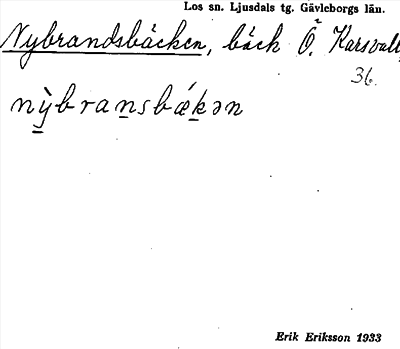 Los sn. Ljusdals tg. Gävleborgs län.
Nybrandsbäcken, bäck Ö. Karsvall,
36.
nỳbransbǽkən
Erik Eriksson 1933